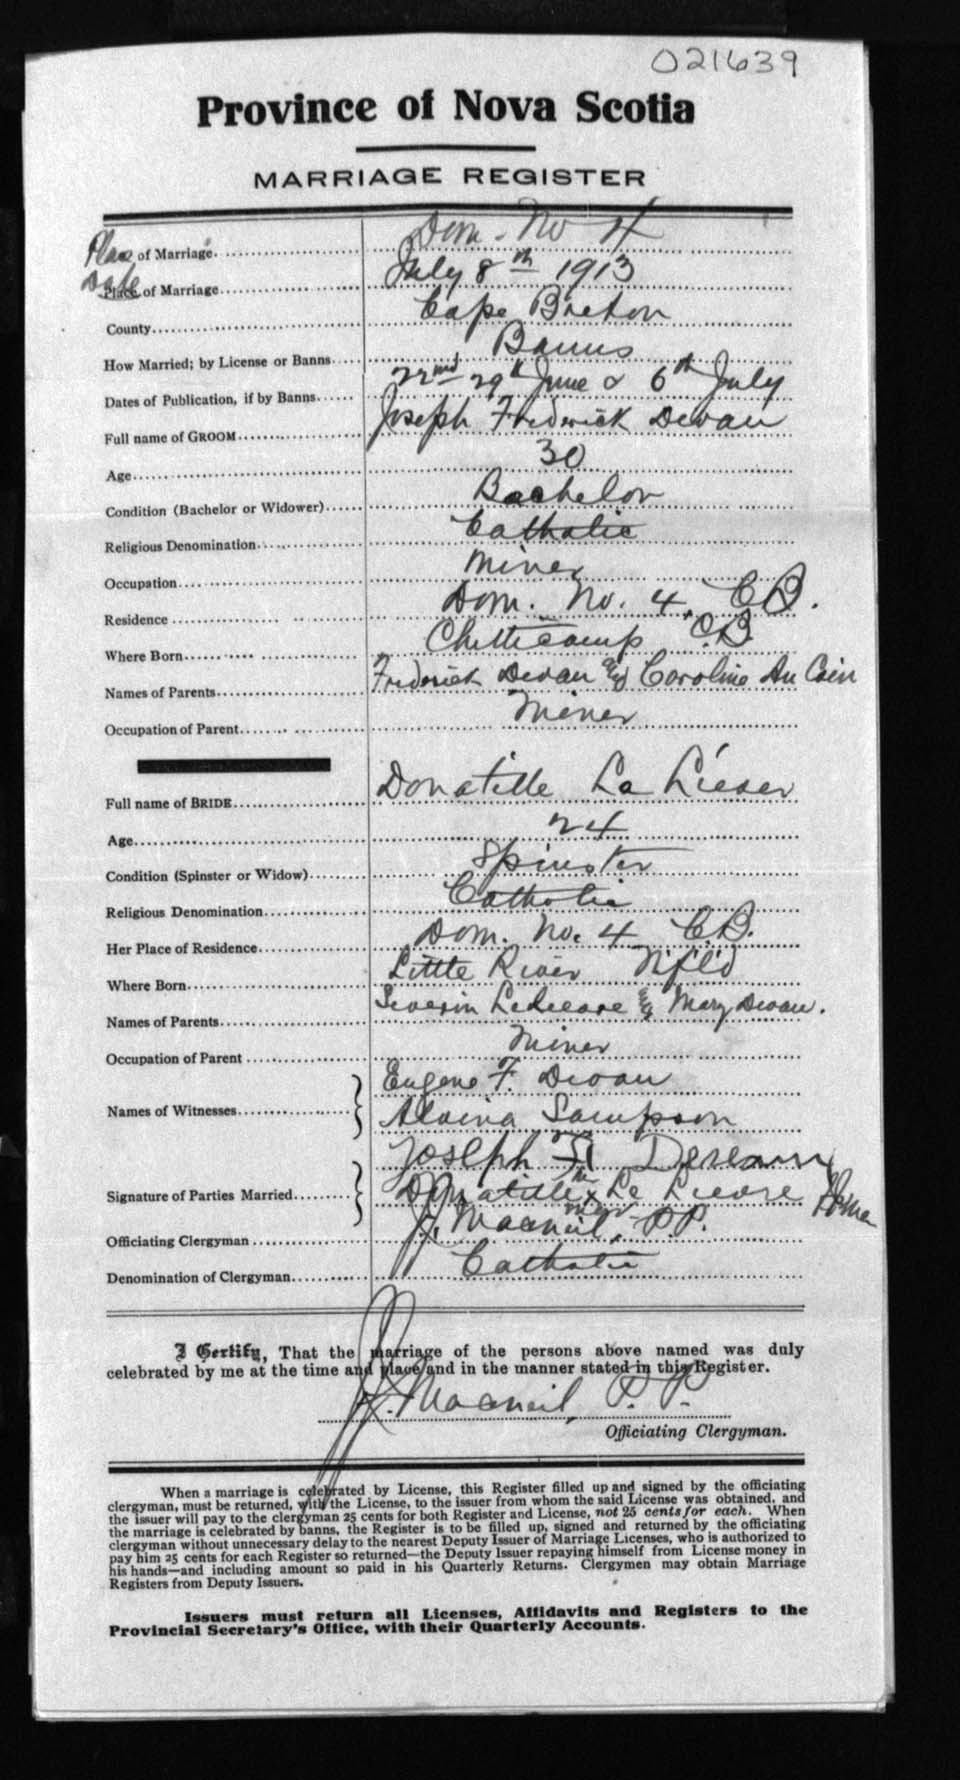 021639
Province of Nova Scotia
MARRIAGE REGISTER
Place of Marriage Dom. No 4
Date Place of Marriage July 8th 1913
County Cape Breton
How Married; by License or Banns Banns
Dates of Publication, if by Banns 22nd 29th June & 6th July
Full name of GROOM Joseph Frederick Devau
Age 30
Condition (Bachelor or Widower) Bachelor
Religious Denomination Catholic
Occupation Miner
Residence Dom. No. 4, C.B.
Where Born Chetticamp C.B.
Names of Parents Frederick Devau & Caroline Au Coin
Occupation of Parent Miner
Full name of BRIDE Donatille La Liever
Age 24
Condition (Spinster or Widow) Spinster
Religious Denomination Catholic
Her Place of Residence Dom. No. 4 C.B.
Where Born Little River Nfl'd
Names of Parents Severin & Mary Devau.
Occupation of Parent Miner
Names of Witnesses Eugene F. Devau
Alvina Sampson
Signature of Parties Married Joseph
Donatille x Le Lievre
mark
Officiating Clergyman J. J. Macneil, P.P.
Denomination of Clergyman Catholic
I Certify, That the marriage of the persons above named was duly
celebrated by me at the time and place and in the manner stated in this Register.
J. J. Macneil, P. P.
Officiating Clergyman.
When a marriage is celebrated by License, this Register filled up and signed by the officiating
clergyman, must be returned, with the License, to the issuer from whom the said License was obtained, and
the issuer will pay to the clergyman 25 cents for both Register and License, not 25 cents for each. When
the marriage is celebrated by banns, the Register is to be filled up, signed and returned by the officiating
clergyman without unnecessary delay to the nearest Deputy Issuer of Marriage Licenses, who is authorized to
pay him 25 cents for each Register so returned—the Deputy Issuer repaying himself from License money in
his hands—and including amount so paid in his Quarterly Returns. Clergymen may obtain Marriage
Registers from Deputy Issuers.
Issuers must return all Licenses, Affidavits and Registers to the
Provincial Secretary's Office, with their Quarterly Accounts.